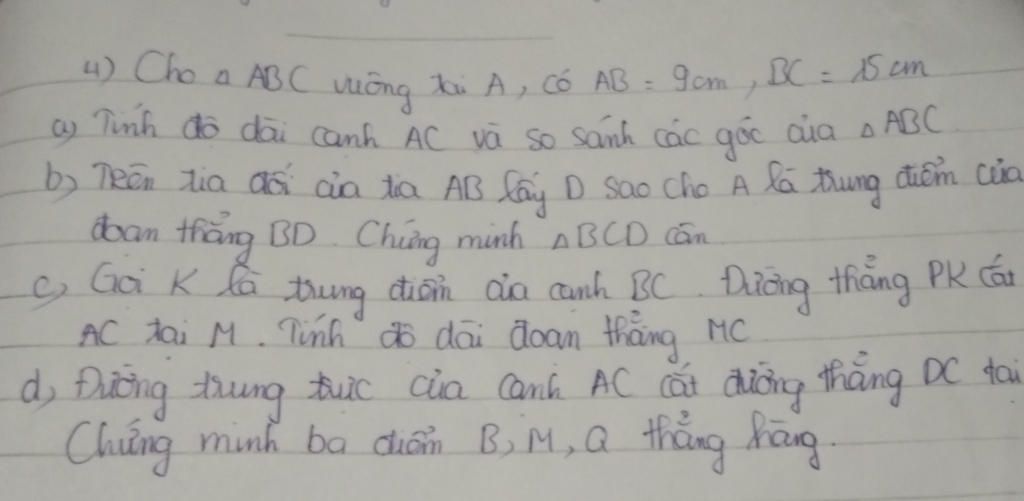 4) Cho △ ABC vuông tại A, có AB = 9cm, BC = 15 cm
a) Tính độ dài cạnh AC và so sánh các góc của △ ABC.
b) Trên tia đối của tia AB lấy D sao cho A là trung điểm của
đoạn thẳng BD. Chứng minh △BCD cân
c) Gọi K là trung điểm của cạnh BC. Đường thẳng PK cắt
AC tại M. Tính độ dài đoạn thẳng MC
d) Đường trung trực của cạnh AC cắt đường thẳng DC tại
Chứng minh ba điểm B, M, Q thẳng hàng.